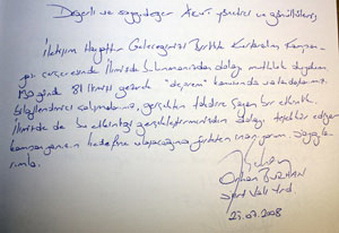 Değerli ve saygıdeğer Akut yönetici ve gönüllüleri,
İletişim Hayattır Geleceğinizi Birlikte Kurtaralım Kampan-
yası çerçevesinde İlimizde bulunmanızdan dolayı mutluluk duydum.
81 İlimizi gezerek "deprem" konusunda vatandaşımızı
bilgilendirici çalışmanız, gerçekten takdire şayan bir etkinlik.
İlimizde de bu etkinliği gerçekleştirmenizden dolayı teşekkür eder,
kampanyanın hedefine ulaşacağına yürekten inanıyorum. Saygıla-
rımla.
Orhan
Vali Yrd.
23.07.2008